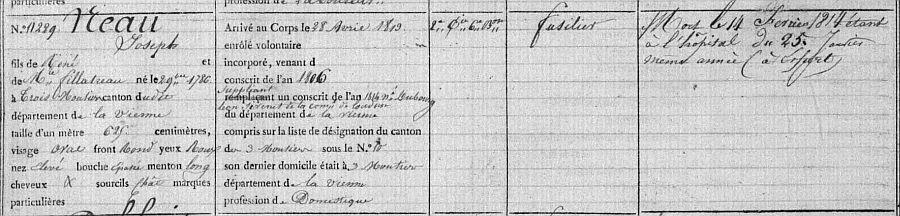 particulières
profession d
N.º 11229 Neau
Joseph
fils de René et
de M.ie Fillatreau né le 29 1786
à Trois Moutier canton dudit
département de la Vienne
taille d'un mètre 625 centimètres,
visage oval front Rond yeux Roux
nez élevé bouche menton long
cheveux & sourcils chât marques
particulières
Arrivé au Corps le 28 Avril 1813
enrôlé volontaire
incorporé, venant d
conscrit de l'an 1806
suppléant
remplaçant un conscrit de l'an 1814 n.é Dubourg
de la comp. de
du département de la Vienne
compris sur la liste de désignation du canton
de 3 Moutier sous le N.º 10
son dernier domicile était à 3 Moutier
département de la Vienne
profession de Domestique
2.e 6.e
fusilier
Mort le 14 Février 1814 étant
à l'hôpital du 25 Janvier
meme année (à Erfurt)